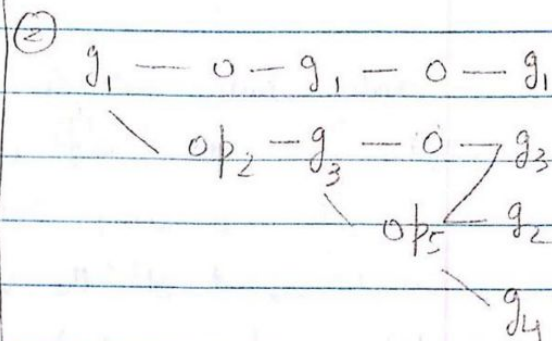 2
g₁ — o — g₁ — o — g₁
op₂ — g₃ — o — g₃
op₅ — g₂
g₄